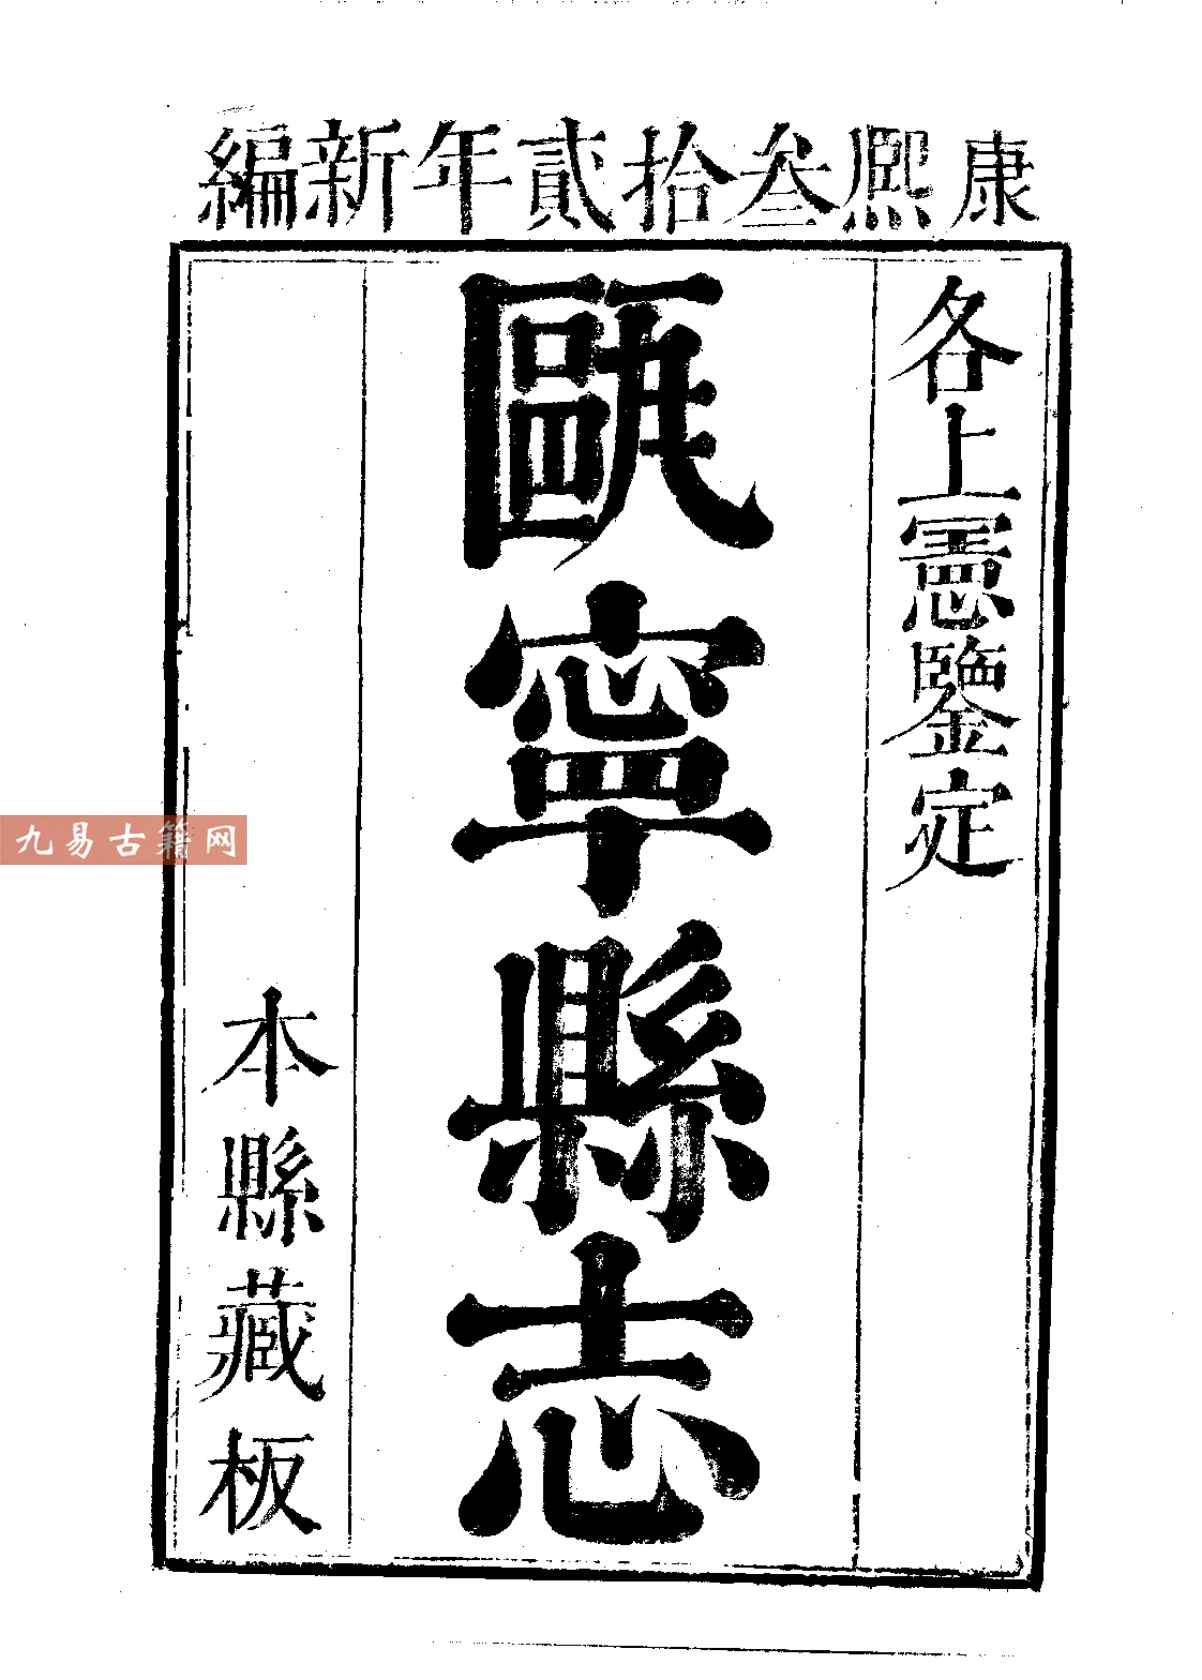 康熙叁拾貳年新編
各上憲鑒定
甌寧縣志
本縣藏板
九易古籍网